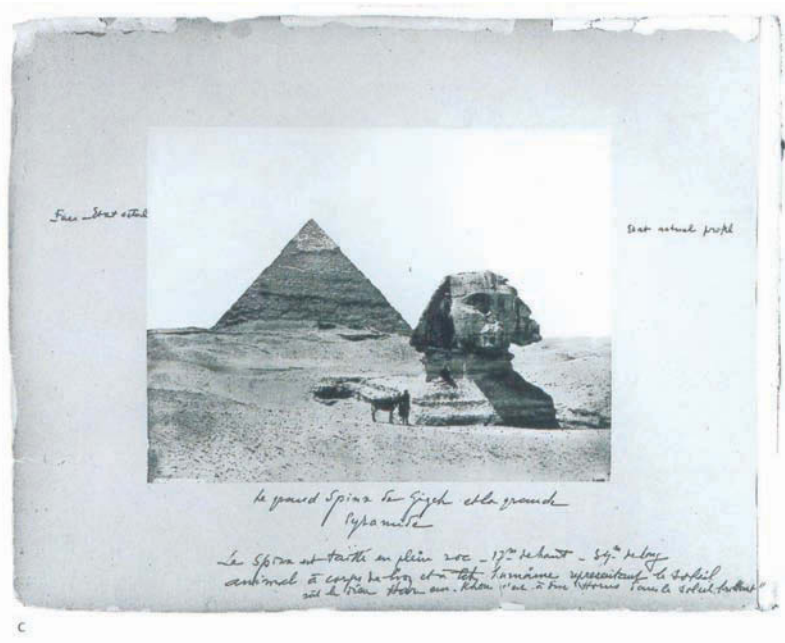 Face – Etat actuel
Etat actuel profil
Le grand Spinx de Gizeh et la grande
Pyramide
Le Spinx est taillé en plein roc – 17m de haut – 39m de long
animal à corps de lion et à tête humaine représentant le soleil
soit le dieu Hor Khou à Horus dans le soleil brillant
C